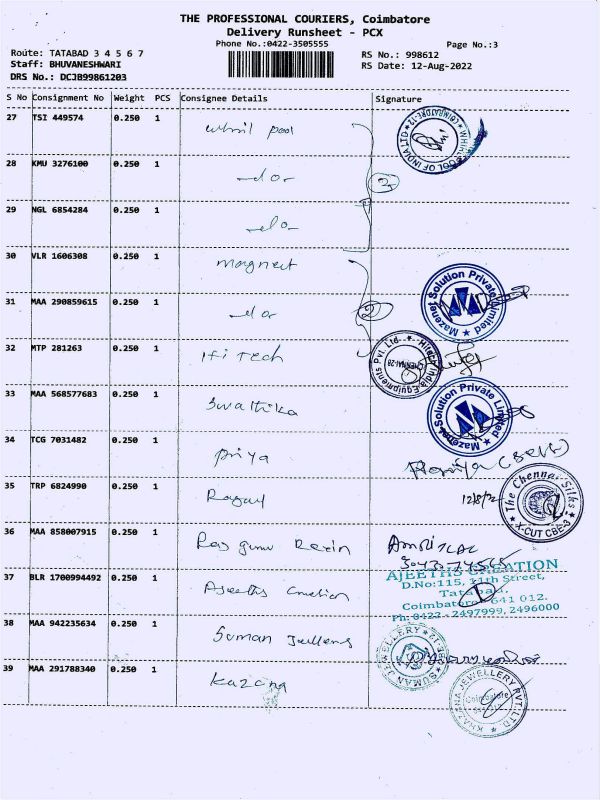 THE PROFESSIONAL COURIERS, Coimbatore
Delivery Runsheet - PCX
Phone No.:0422-3505555
Page No.:3
Route: TATABAD 3 4 5 6 7
RS No.: 998612
Staff: BHUVANESHWARI
RS Date: 12-Aug-2022
DRS No.: DCJB99861203
S No Consignment No Weight PCS Consignee Details Signature
27 TSI 449574 0.250 1 whril pool
WHIRLPOOL OF INDIA LTD COIMBATORE-12
28 KMU 3276100 0.250 1 -do- 3
29 NGL 6854284 0.250 1 -do-
30 VLR 1606308 0.250 1 magnect
Mazenet Solution Private Limited
31 MAA 290859615 0.250 1 -do- 2
32 MTP 281263 0.250 1 Hi Tech
Hitech India Equipments Pvt. Ltd. CHENNAI-28
33 MAA 568577683 0.250 1 Swathika
Mazenet Solution Private Limited
34 TCG 7031482 0.250 1 priya
35 TRP 6824990 0.250 1
12/8/22
The Chennai Silks X-CUT CBE-3
36 MAA 858007915 0.250 1
37 BLR 1700994492 0.250 1 Ajeeths Creation
AJEETHS CREATION
D.No:115, 11th Street,
Tatabad,
Coimbatore - 641 012.
Ph: 0422 - 2497999, 2496000
38 MAA 942235634 0.250 1 Suman Jullens
SUMAN JEWELLERY
39 MAA 291788340 0.250 1 Kazana
KHAZANA JEWELLERY PVT. LTD
Coimbatore